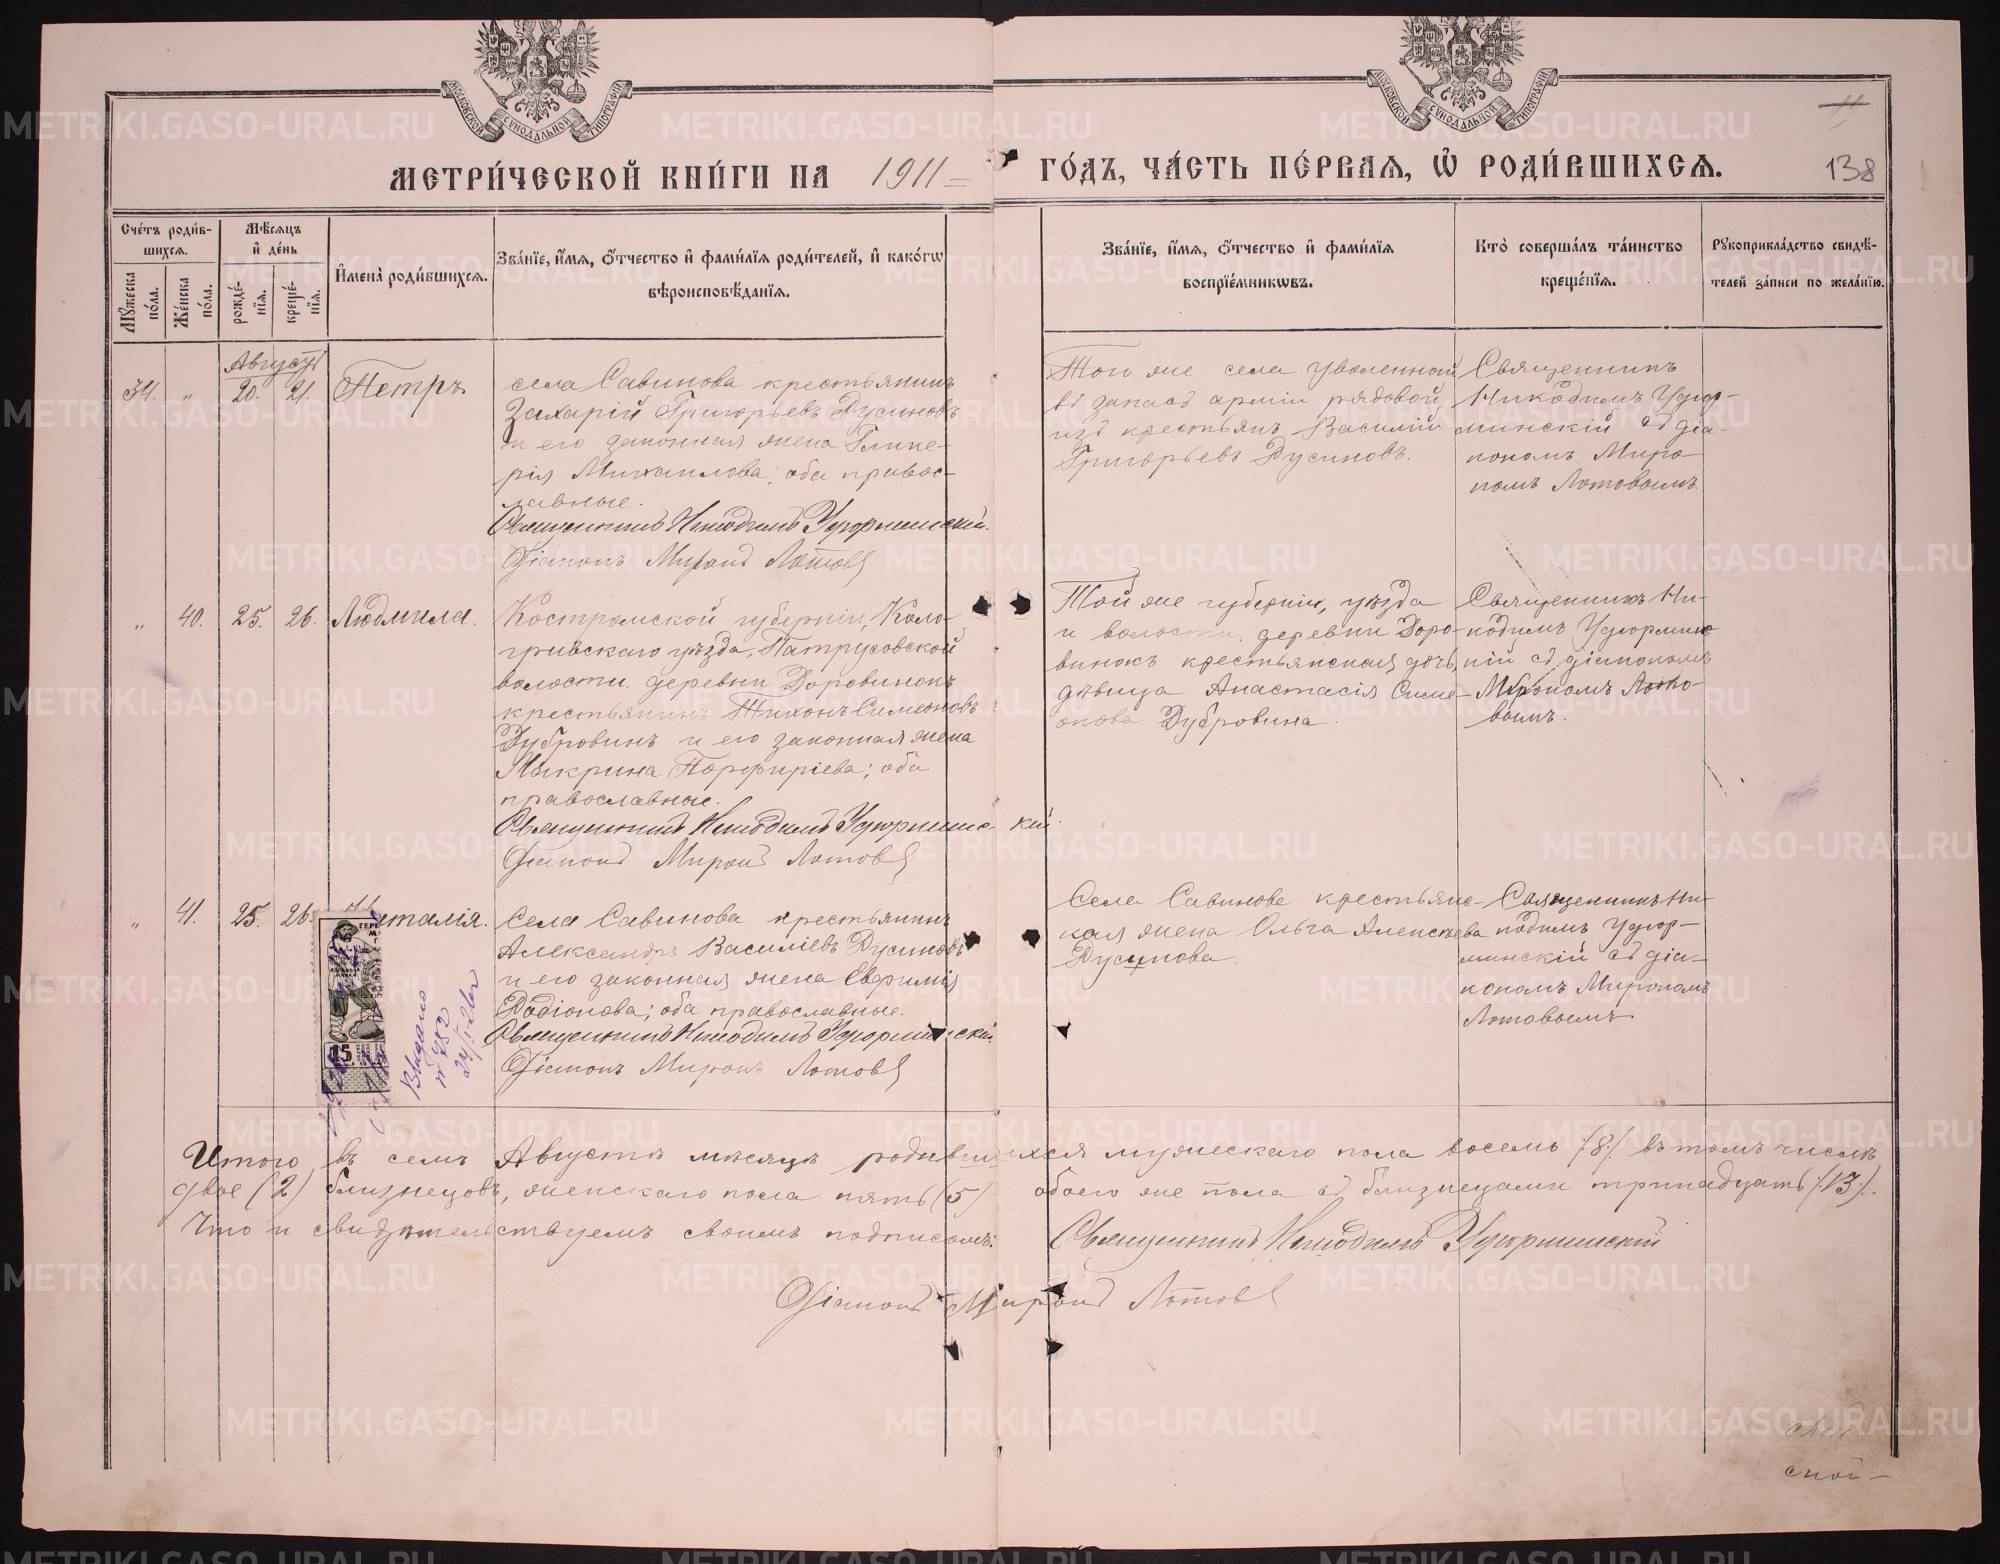 МОСКОВСКОЙ СѴНОДАЛЬНОЙ ТИПОГРАФІИ
МОСКОВСКОЙ СѴНОДАЛЬНОЙ ТИПОГРАФІИ
МЕТРИ́ЧЕСКОЙ КНИ́ГИ НА 1911 ГО́ДЪ, ЧА́СТЬ ПЕ́РВАѦ, Ѽ РОДИ́ВШИХСѦ.
138
Сче́тъ роди́в-
шихсѧ.
Мꙋ́жеска по́ла.
Же́нска по́ла.
Мѣ́сѧцъ
и҆ де́нь
рожде́-
нїѧ.
креще́-
нїѧ.
И҆мена̀ роди́вшихсѧ.
Зва́нїе, и҆́мѧ, ѻ҆́тчество и҆ фами́лїѧ роди́телей, и҆ како́гѡ
вѣроисповѣ́данїѧ.
Зва́нїе, и҆́мѧ, ѻ҆́тчество и҆ фами́лїѧ
воспрїе́мникѡвъ.
Кто̀ соверша́лъ та́инство
креще́нїѧ.
Рꙋкоприкла́дство свидѣ́-
телей за́писи по жела́нїю.
Августъ
34. „ 20. 21. Петръ.
села Савинова крестьянинъ
Захарій Григорьевъ Русиновъ
и его законная жена Глике-
рія Михаилова; оба правос-
лавные.
Священникъ Никодимъ Удюрминскій.
Діаконъ Миронъ Лотовъ
Того же села уволенной
въ запасъ арміи рядовой
изъ крестьянъ Василій
Григорьевъ Русиновъ.
Священникъ
Никодимъ Удюр-
минскій съ діа-
кономъ Миро-
номъ Лотовымъ.
„ 40. 25. 26. Людмила.
Костромской губерніи, Коло-
гривскаго уѣзда, Патрусовской
волости, деревни Доровинокъ
крестьянинъ Тихонъ Симеоновъ
Дубровинъ и его законная жена
Макрина Порфиріева; оба
православные.
Священникъ Никодимъ Удюрминскій
Діаконъ Миронъ Лотовъ
Той же губерніи, уѣзда
и волости, деревни Доро-
винокъ крестьянская дочь,
дѣвица Анастасія Симе-
онова Дубровина.
Священникъ Ни-
кодимъ Удюрминс-
кій съ діакономъ
Мирономъ Лото-
вымъ.
„ 41. 25. 26. Наталія.
Села Савинова крестьянинъ
Александръ Василіевъ Русиновъ
и его законная жена Евфимія
Родіонова; оба православные.
Священникъ Никодимъ Удюрминскій
Діаконъ Миронъ Лотовъ
Села Савинова крестьянс-
кая жена Ольга Алексѣева
Русинова.
Священникъ Ни-
кодимъ Удюр-
минскій съ діа-
кономъ Мирономъ
Лотовымъ
15
Выдано
№ 282
Итого въ семъ Августѣ мѣсяцѣ родившихся мужескаго пола восемь /8/ въ томъ числѣ
двое (2) близнецовъ, женскаго пола пять (5) обоего же пола съ близнецами тринадцать /13/.
Что и свидѣтельствуемъ своимъ подписомъ:
Священникъ Никодимъ Удюрминскій
Діаконъ Миронъ Лотовъ
ской
METRIKI.GASO-URAL.RU